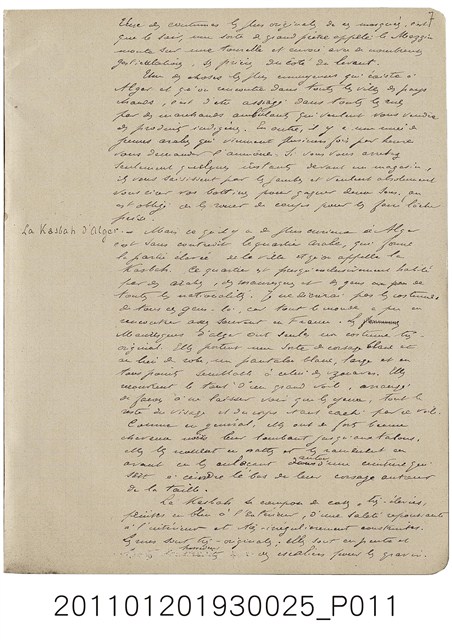 7
Une des coutumes les plus originales de ces mosquées, c'est
que le soir, une sorte de grand prêtre appelé le Mezzin
monte sur une tourelle et envoie avec de nombreuses
gesticulations, des prières du côté du levant.
Une des choses les plus ennuyeuses qui existe à
Alger et qu'on rencontre dans toutes les villes des pays
chauds, c'est d'être assiégé dans toutes les rues
par des marchands ambulants qui veulent vous vendre
des produits indigènes. En outre, il y a une nuée de
jeunes arabes qui viennent plusieurs fois par heure
vous demander l'aumône. Si vous vous arrêtez
seulement quelques instants devant un magasin,
ils vous saisissent par les jambes et veulent absolument
vous cirer vos bottines pour gagner deux sous, on
est obligé de les rouer de coups pour les faire lâcher
prise.
La Kasbah d'Alger. - Mais ce qu'il y a de plus curieux à Alger
c'est sans contredit le quartier arabe, qui forme
la partie élevée de la ville et qu'on appelle la
Kasbah. Ce quartier est presqu'exclusivement habité
par des arabes, des mauresques et des gens un peu de
toutes les nationalités. Je ne décrirai pas les costumes
de tous ces gens-là, car tout le monde a pu en
rencontrer assez souvent en France. Les
Mauresques d'Alger ont seules un costume très
original. Elles portent une sorte de corsage blanc et
au lieu de robe, un pantalon blanc, large et en
tous points semblable à celui des zouaves. Elles
recouvrent le tout d'un grand voile, arrangé
de façon à ne laisser voir que les yeux, tout le
reste du visage et du corps étant caché par ce voile.
Comme en général, elles ont de forts beaux
cheveux noirs leur tombant jusqu'aux talons,
elles les mettent en nattes et les ramènent en
avant en les enlaçant autour d'une ceinture qui
sert à ceindre le bas de leur corsage autour
de la taille.
La Kasbah se compose de cases très élevées,
peintes en bleu à l'extérieur, d'une saleté repoussante
à l'intérieur et très irrégulièrement construites.
Les rues sont très originales. Elles sont en pente et
des escaliers pour les gravir.
201101201930025_P011